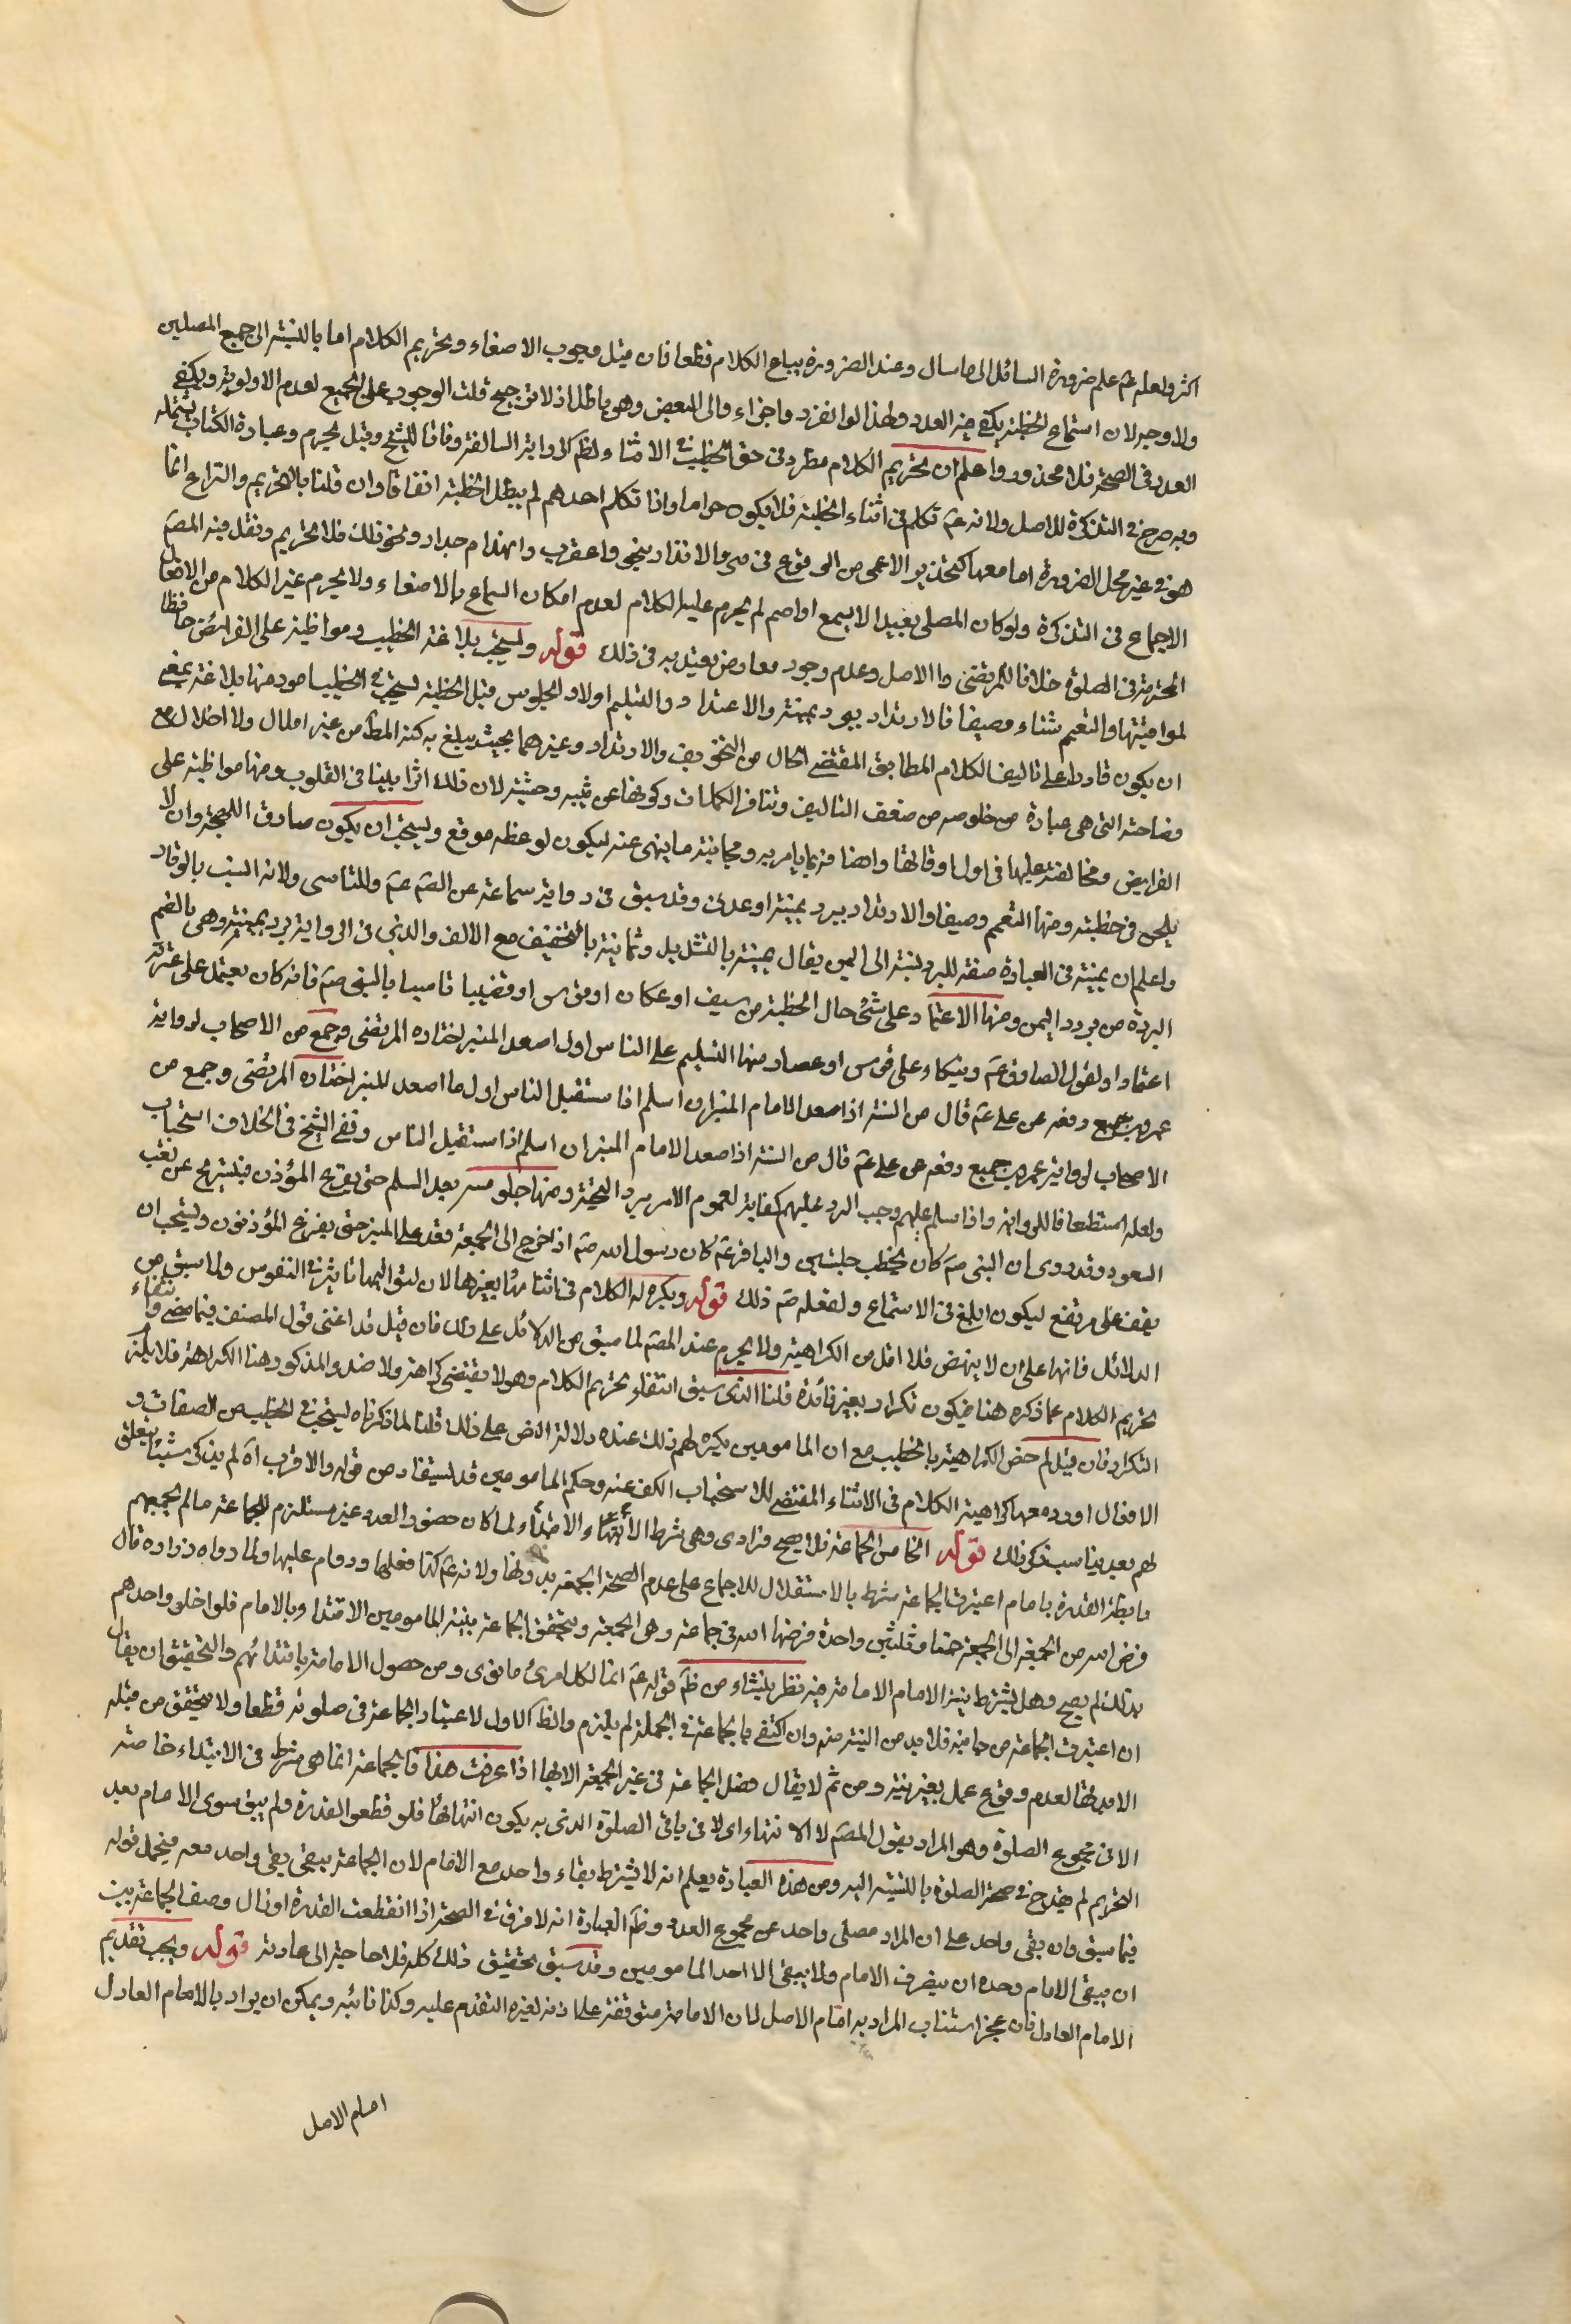 اكثر ولعله عم علم ضرورة السائل الى ما سال وعند الضرورة يباح الكلام قطعا فان قيل وجوب الاصغاء وتحريم الكلام اما بالنسبة الى جميع المصلين
ولا وجه لان استماع الخطبة يكفي فيه العدد ولهذا لو انفرد واجزاء والى البعض وهو باطل اذ لا ترجيح قلت الوجوب على الجميع لعدم الاولوية ويكفي
العدد في الصحة فلا محذور واعلم ان تحريم الكلام مطرد في حق الخطيب في الاثناء ولظم الرواية السالفة وفاقا للشيخ وقيل لا يحرم وعبارة الكتاب يشمله
وبه صرح في التذكرة للاصل ولانه عم تكلم في اثناء الخطبة فلا يكون حراما واذا تكلم احدهم لم يبطل الخطبة اتفاقا وان قلنا بالتحريم والنزاع انما
هو في غير محل الضرورة اما معها كتحذير الاعمى من الوقوع في بئر والانذار بنحو عقرب وانهدام جدار ونحو ذلك فلا تحريم ونقل فيه المصم
الاجماع في التذكرة ولو كان المصلي بعيدا لا يسمع او اصم لم يحرم عليه الكلام لعدم امكان السماع بالاصغاء ولا يحرم غير الكلام من الافعال
المحرمة في الصلوة خلافا للمرتضى والاصل وعدم وجود معارض يعتد به في ذلك قوله ويستحب بلاغة الخطيب ومواظبته على الفرائض حافظا
لمواقيتها والتعمم شتاء وصيفا فالارتداء ببرد يمنية والاعتماد والتسليم اولا والجلوس قبل الخطبة يستحب في الخطيب امور منها بلاغته بمعنى
ان يكون قادرا على تاليف الكلام المطابق المقتضى الحال من التخويف والانذار وغيرهما بحيث يبلغ به كنه المطلب من غير املال ولا اخلال مع
فصاحته التي هي عبارة عن خلوصه من ضعف التاليف وتنافر الكلمات وكونها غريبة وحشية لان ذلك اثرا بينا في القلوب ومنها مواظبته على
الفرايض ومحافظته عليها في اول اوقاتها واتصافه بما يامر به ومجانبته ما ينهى عنه ليكون لوعظه موقع ويستحب ان يكون صادق اللهجة وان لا
يلحن في خطبته ومنها التعمم وصيفا والارتداء ببرد يمنية او عدني وقد سبق في رواية سماعة عن الصم عم وللتاسي ولانه انسب بالوقار
واعلم ان يمنية في العبارة صفة للبرد نسبة الى اليمن يقال يمنية بالتشديد وثمانية بالتخفيف مع الالف والذي في الرواية ببرد يمنية وهي بالضم
البردة من برود اليمن ومنها الاعتماد على شئ حال الخطبة من سيف او عكاز او قوس او قضيب تاسيا بالنبي صم فانه كان يعتمد على عنزته
اعتمادا ولقول الصادق عم ويتكاء على قوس او عصا ومنها التسليم على الناس اول ما صعد المنبر اختاره المرتضى وجمع من الاصحاب لرواية
عمرو بن جميع رفعه عن علي عم قال من السنة اذا صعد الامام المنبر ان اسلم اذا مستقبل الناس اول ما صعد المنبر اختاره المرتضى وجمع من
الاصحاب لرواية عمرو بن جميع رفعه عن علي عم قال من السنة اذا صعد الامام المنبر ان اسلم اذا مستقبل الناس ونفى الشيخ في الخلاف استحباب
ولعله استطعا فاللرواية واذا سلم عليهم وجب الرد عليهم كفاية لعموم الامر برد التحية ومنها جلوسه بعد السلم حتى يفرغ المؤذن فيستريح عن تعب
الصعود وقد روي ان النبي صم كان يخطب جلستين والباقر عم كان رسول الله صم اذا خرج الى الجمعة قعد على المنبر حتى يفرغ المؤذنون ويستحب ان
يقف على مرتفع ليكون ابلغ في الاستماع ولفعله صم ذلك قوله ويكره له الكلام في اثنائها بغيرها لان لتواليها تاثيرا في النفوس ولما سبق من
الدلائل فانها على ان لا ينهض فلا اقل من الكراهية ولا يحرم عند المصم لما سبق من الدلائل على ذلك فان قيل قد اغنى قول المصنف فيما مضى وانتفاء
تحريم الكلام عما ذكره هنا فيكون تكرارا بغير فائدة قلنا الذي سبق انتفاء تحريم الكلام وهو لا يقتضي كراهته ولا ضده والمذكور هنا الكراهة فلا يلزم
التكرار فان قيل لم خص الكراهية بالخطيب مع ان المامومين يكره لهم ذلك عنده دلالة النص على ذلك قلنا لما ذكر ما يستحب في الخطيب من الصفات و
الافعال اورد معها كراهية الكلام في الاثناء المقتضي للاستحباب الكف عنه وحكم المامومين قد يستفاد من قوله والاقرب آه لم يذكر شيئا يتعلق
لهم بعد يناسب ذكر ذلك قوله الخامس الجماعة فلا يصح فرادى وهي شرط الابتداء لا الانتهاء لما كان حضور العدد غير مستلزم للجماعة ما لم يجمعهم
رابطة القدوة بامام اعتبرت الجماعة شرطا بالاستقلال للاجماع على عدم الصحة الجمعة بدونها ولانه عم كذا فعلها ودوام عليها ولما رواه زرارة قال
فرض الله من الجمعة الى الجمعة خمسا وثلثين واحدة فرضها الله في جماعة وهي الجمعة ويتحقق الجماعة بنية المامومين الاقتداء بالامام فلو اخل واحدهم
بذلك لم يصح وهل يشترط نية الامام الامامة فيه نظر ينشاء من ظم قوله عم انما لكل امرئ ما نوى ومن حصول الامامة باقتدائهم والتحقيق ان يقال
ان اعتبرت الجماعة من جانبه فلا بد من النية منه وان اكتفى بالجماعة في الجملة لم يلزم والظ الاول لاعتبار الجماعة في صلوته قطعا ولا يتحقق من قبله
الا بنيتها لعدم وقوع عمل بغير نية ومن ثم لا يقال فضل الجماعة في غير الجمعة الا بها اذا عرفت هذا فالجماعة انما هي شرط في الابتداء خاصة
لا في مجموع الصلوة وهو المراد بقول المصم لا الانتهاء اي لا في باقي الصلوة الذي به يكون انتهائها فلو قطعوا القدوة ولم يبق سوى الامام بعد
التحريم لم يقدح في صحة الصلوة بالنسبة اليه ومن هذه العبارة يعلم انه لا يشترط بقاء واحد مع الامام لان الجماعة يبقى ببقى واحد معه فيحمل قوله
فيما سبق وان بقي واحد على ان المراد مصلى واحد عن مجموع العدد وظم العبارة انه لا فرق في الصحة اذا انقطعت القدوة او زال وصف الجماعة بين
ان يبقى الامام وحده ان ينصرف الامام ولا يبقى الا احد المامومين وقد سبق تحقيق ذلك كله فلا حاجة الى عادته قوله ويجب تقديم
الامام العادل فان عجز استناب المراد به امام الاصل لان الامامة متوقفة على اذنه لغيره التقدم عليه وكذا نائبه ويمكن ان يراد بالامام العادل
امام الاصل